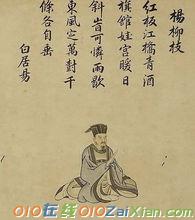 楊柳枝
紅板江橋青酒
旗館娃宮暖日
斜旹可憐雨歇
東風定萬樹千
條各自垂
白居易
010在线 010Zaixian.com